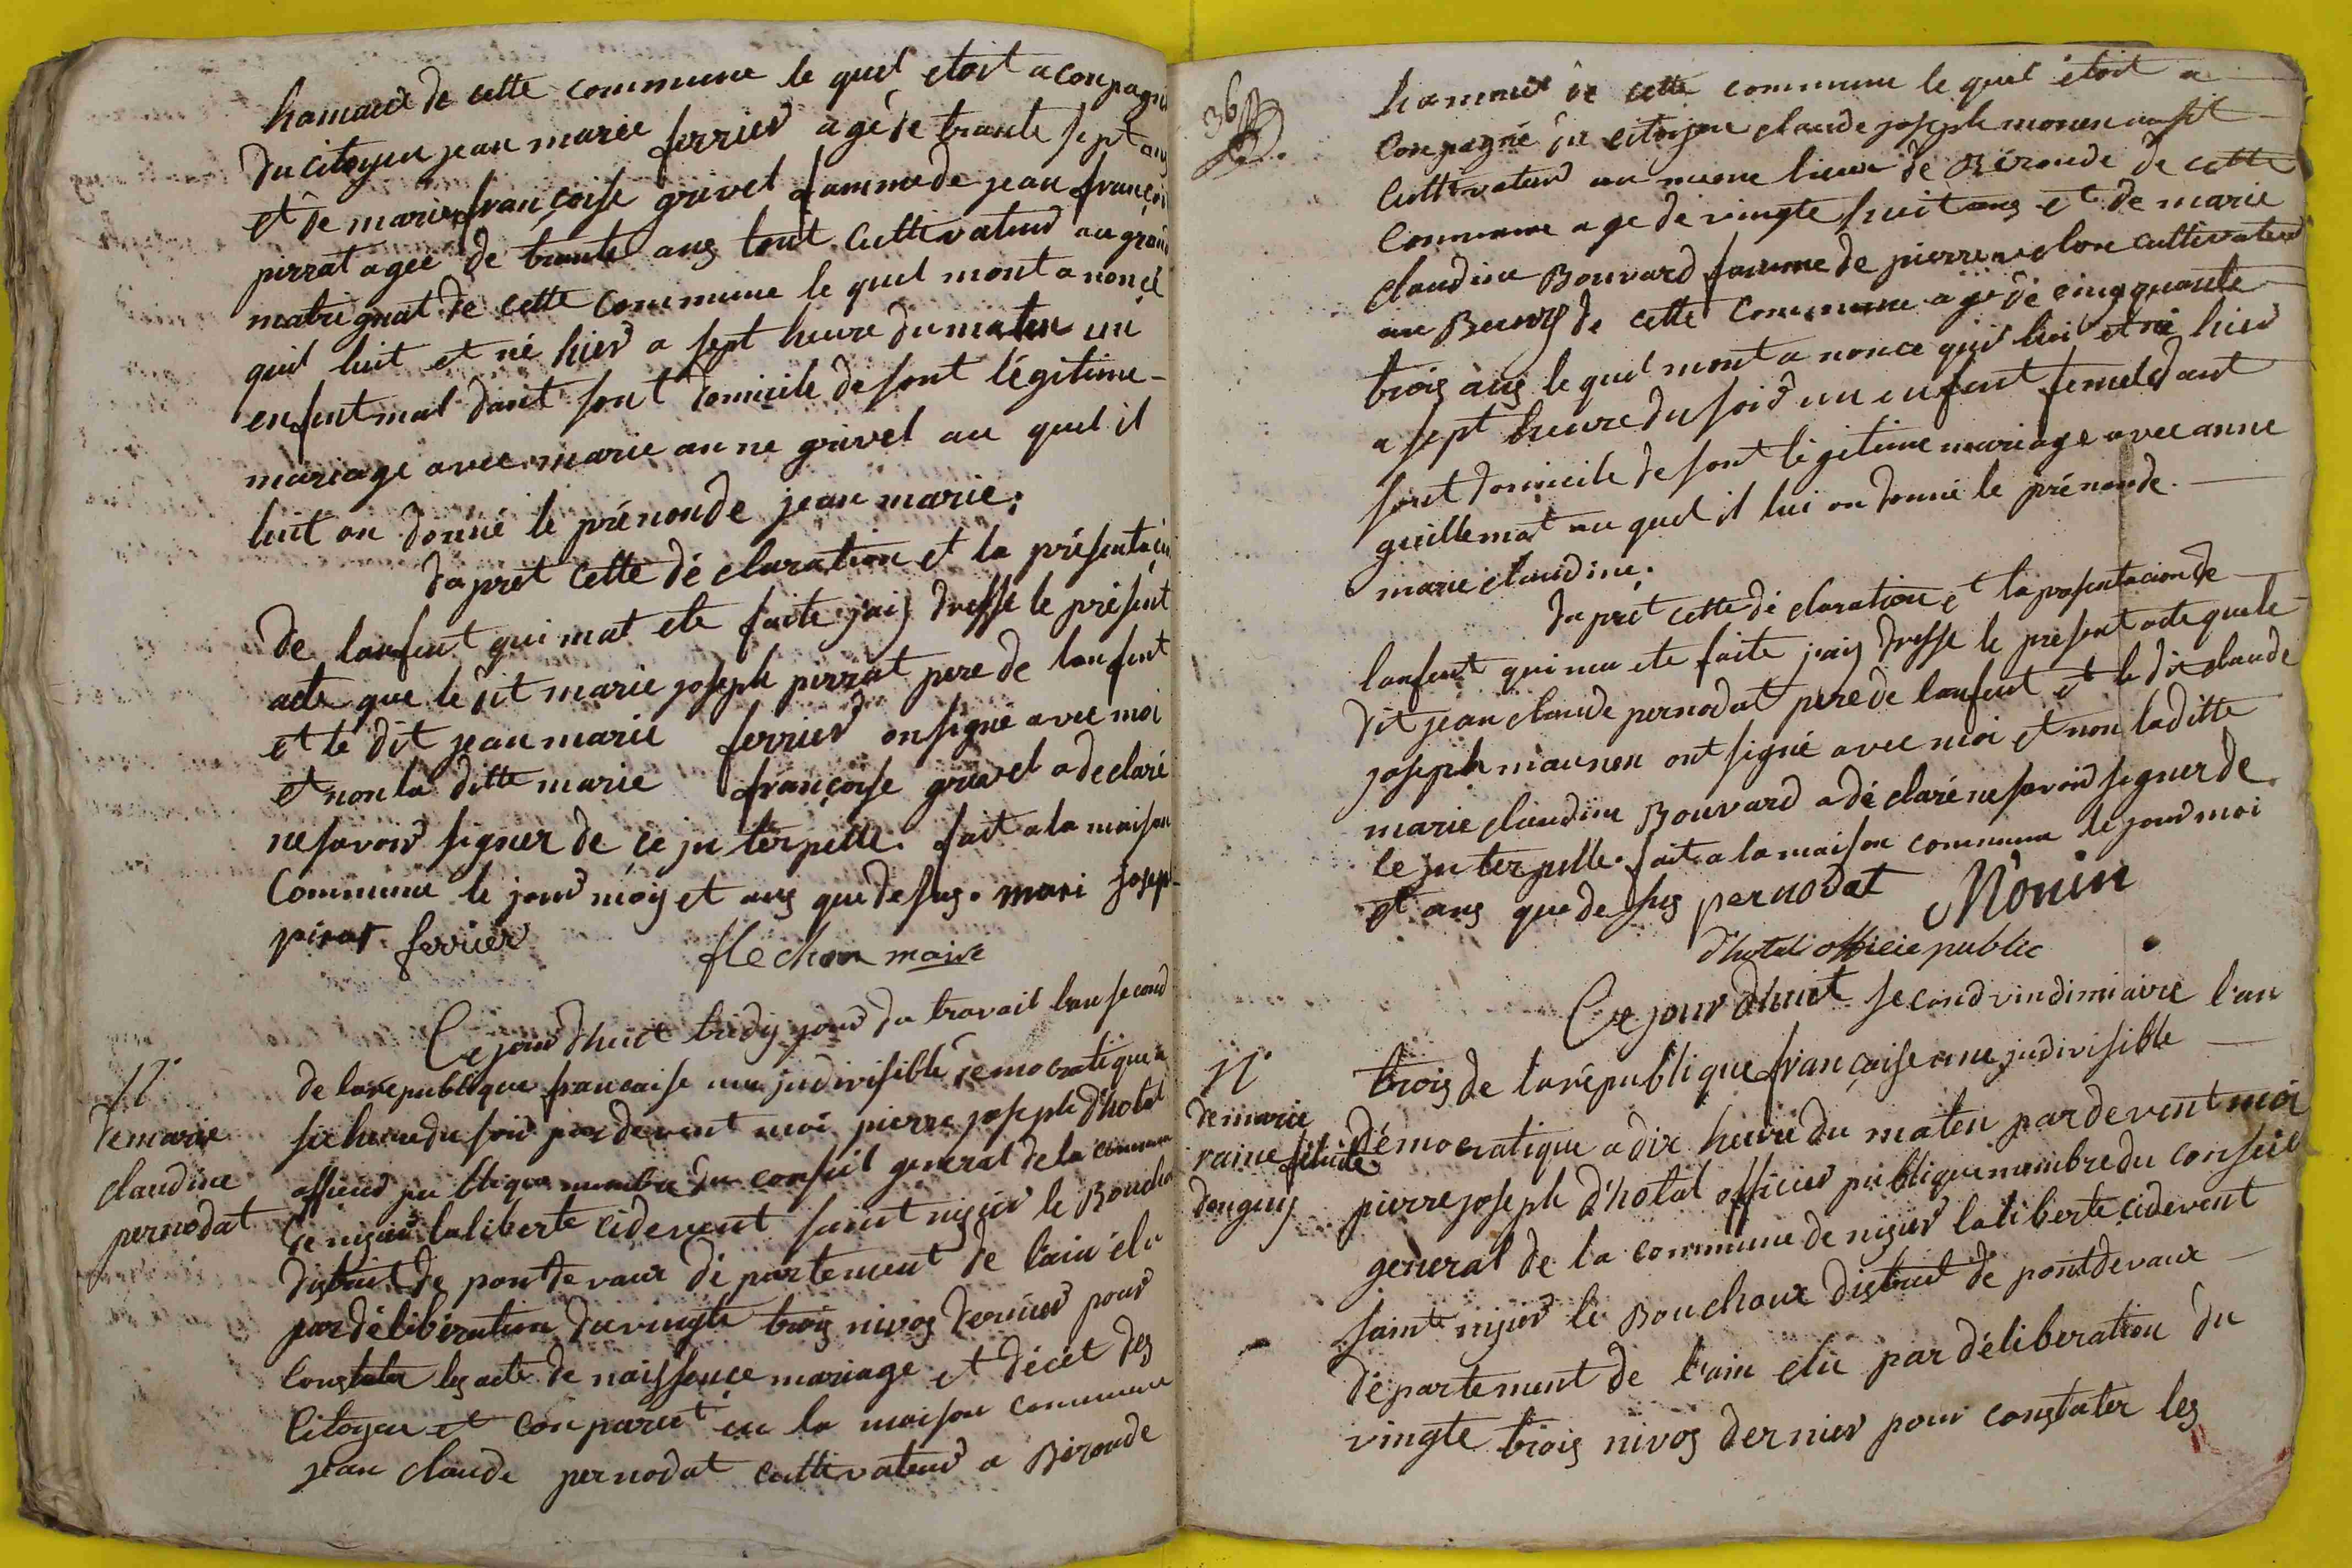 hameaux de cette commune le quel etoit acconpagné
du citoyen jean marie ferrier agé de trante sept ans
et de marie françoise grivel famme de jean françoi
pirrat agee de trante ans tout cultivateur au grand
matrignat de cette commune le quel mont a noncé
quil luit et né hier a sept heure du maten un
enfent mal dant sont domicile de sont légitime
mariage avec marie anne grivel au quel il
luit on donné le prénon de jean marie.
dapret cette déclaration et la présentacion
de lanfent qui mat ete faite jaiy dresse le présent
acte que le dit marie joseph pirrat pere de lanfent
et le dit jean marie ferrier on signé avec moi
et non la ditte marie françoise grivel a declaré
ne savoir signer de ce jnterpelle. fait a la maison
commune le jour moiy et ans que desus. mari josep
pirat ferrier
flechon maire
Ce jourdhuit tridy jour du travail lan second
de la republique francaise une jndivisible démocratique a
six heure du soir par devent moi pierre joseph d'hotal
officier publique membre du conseil general de la commune
de nizier la liberte cidevent saint nizier le Boucho
district de pont de vaux département de lain élu
par délibération du vingte trois nivos dernier pour
constater les acte de naissence mariage et décét des
citoyen et conparut en la maison commune
jean claude pernodat cultivateur a Bironde
N.
de marie
claudine
pernodat
36
hammeit de cette commune le quel étoit a
conpagné du citoyen claude joseph monen ausit
cultivateur au meme lieux de Bironde de cette
commune age de vingte huit ans et de marie
claudine Bouvard famme de pierre velon cultivateur
au Bourg de cette commune agé de cinqquante
trois ans le quel mont a noncé quil lui et né hier
a sept heure du soir un enfent femele dant
sont domicile de sont légitime mariage avec anne
guillemat au quel il lui on donné le prénon de
marie claudine.
dapret cette déclaration et la présentacion de
lanfent qui ma ete faite jaiy dresse le présent acte que le
dit jean claude pernodat pere de lanfent et le dit claude
joseph maunen ont signé avec moi et non la ditte
marie claudine Bouvard a déclaré ne savoir signer de
ce jnterpelle. fait a la maison commune le jour moi
et ans que desus pernodat Monin
d'hotal officie public
Ce jour dhuit second vindimiaire l'an
trois de la république française une jndivisible
démocratique a dix heure du maten par devent moi
pierre joseph d'hotal officier publique membre du conseil
general de la commune de nizier la liberte cidevent
saint nizier le Bouchoux district de pont de vaux
département de l'ain elu par délibération du
vingte trois nivos dernier pour constater les
N.
de marie
raine félicité
donguy